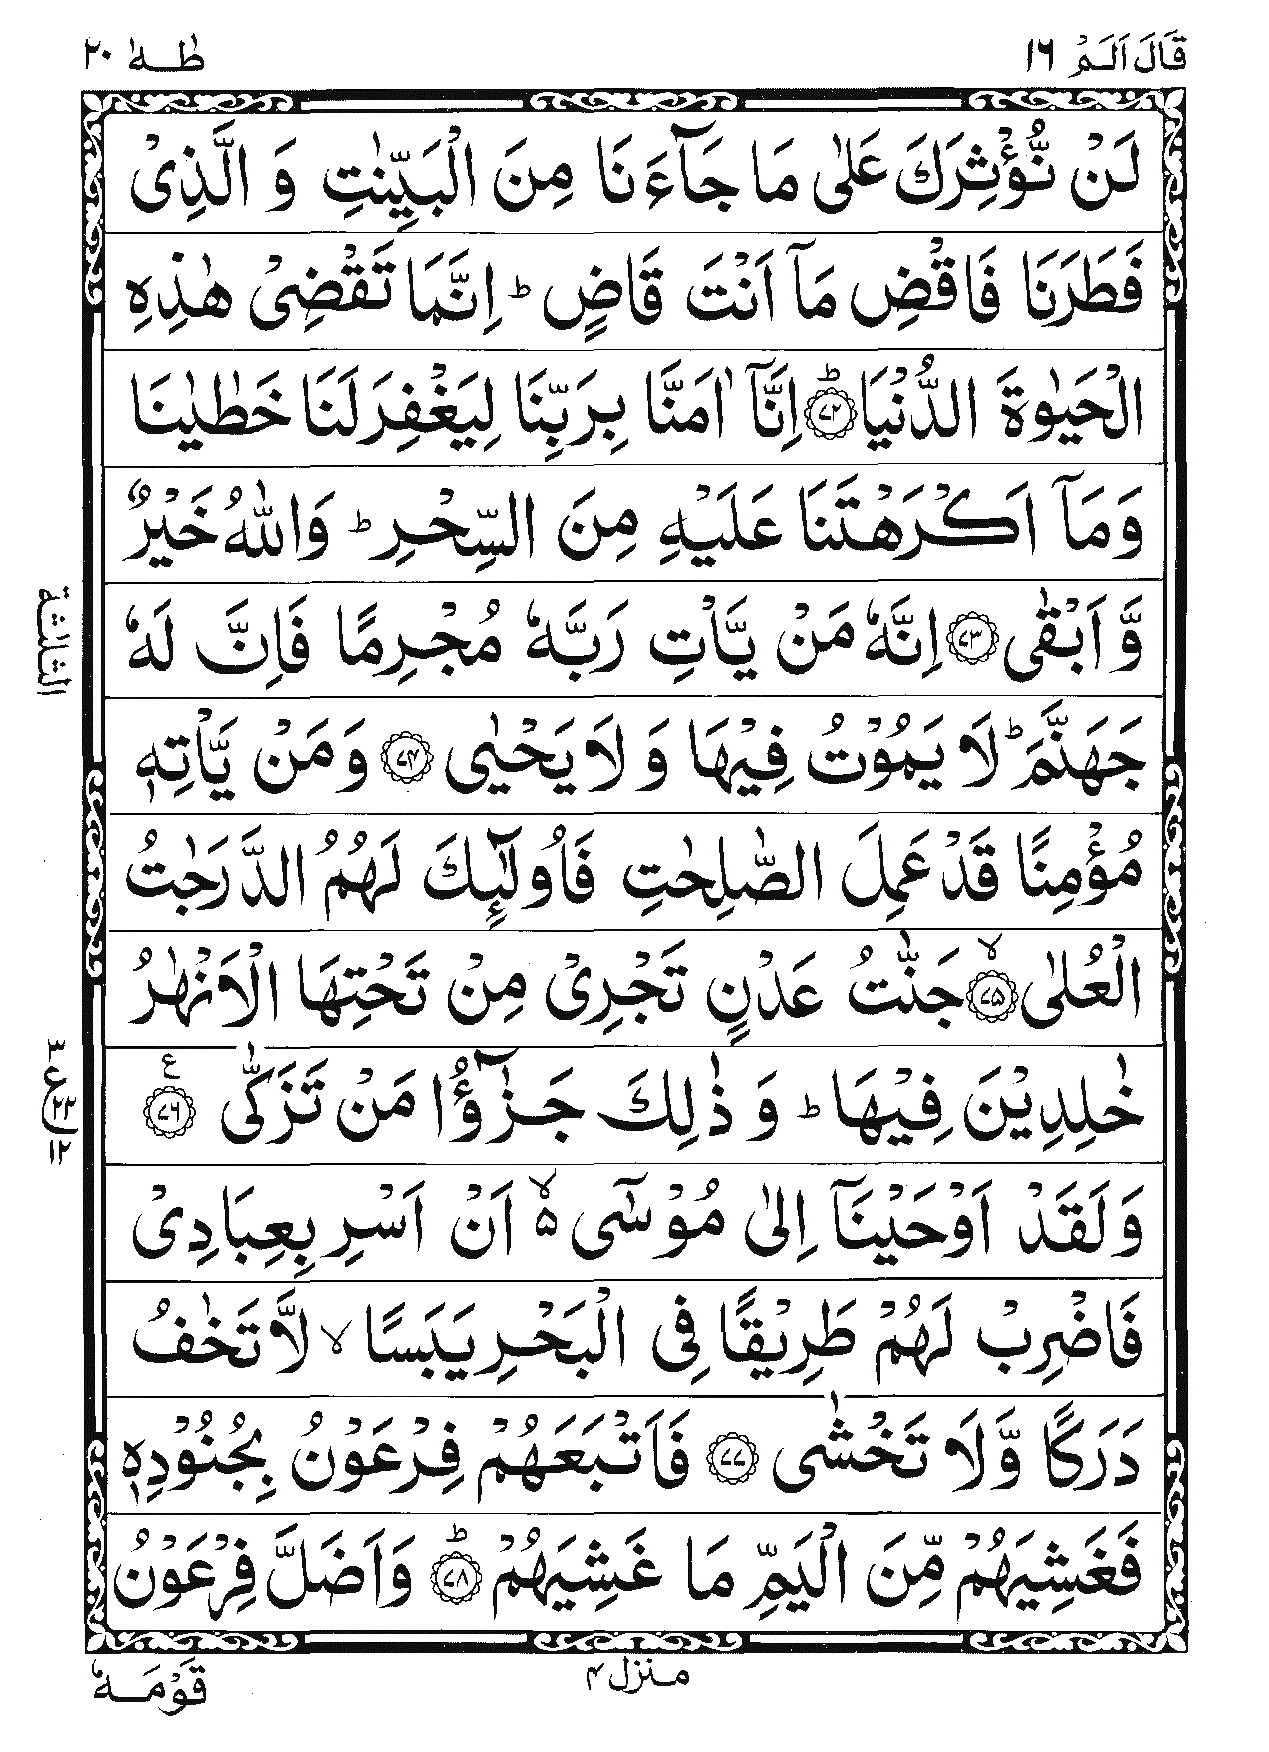 قَالَ اَلَمْ ١٦
طٰهٰ ٢٠
لَنْ نُّؤْثِرَكَ عَلٰى مَا جَآءَنَا مِنَ الْبَيِّنٰتِ وَ الَّذِىْ
فَطَرَنَا فَاقْضِ مَآ اَنْتَ قَاضٍ ؕ اِنَّمَا تَقْضِىْ هٰذِهِ
الْحَيٰوةَ الدُّنْيَا ؕ﴿۷۲﴾ اِنَّآ اٰمَنَّا بِرَبِّنَا لِيَغْفِرَ لَنَا خَطٰيٰنَا
وَمَآ اَكْرَهْتَنَا عَلَيْهِ مِنَ السِّحْرِ ؕ وَاللّٰهُ خَيْرٌ
وَّ اَبْقٰى ﴿۷۳﴾ اِنَّهٗ مَنْ يَّاْتِ رَبَّهٗ مُجْرِمًا فَاِنَّ لَهٗ
جَهَنَّمَ ؕ لَا يَمُوْتُ فِيْهَا وَ لَا يَحْيٰى ﴿۷۴﴾ وَ مَنْ يَّاْتِهٖ
مُؤْمِنًا قَدْ عَمِلَ الصّٰلِحٰتِ فَاُولٰٓئِكَ لَهُمُ الدَّرَجٰتُ
الْعُلٰى ۙ﴿۷۵﴾ جَنّٰتُ عَدْنٍ تَجْرِىْ مِنْ تَحْتِهَا الْاَنْهٰرُ
خٰلِدِيْنَ فِيْهَا ؕ وَ ذٰلِكَ جَزٰٓؤُا مَنْ تَزَكّٰى ﴿۷۶﴾ ع
وَلَقَدْ اَوْحَيْنَآ اِلٰى مُوْسٰٓى ۙ۵ اَنْ اَسْرِ بِعِبَادِىْ
فَاضْرِبْ لَهُمْ طَرِيْقًا فِى الْبَحْرِ يَبَسًا ۙ لَّا تَخٰفُ
دَرَكًا وَّ لَا تَخْشٰى ﴿۷۷﴾ فَاَتْبَعَهُمْ فِرْعَوْنُ بِجُنُوْدِهٖ
فَغَشِيَهُمْ مِّنَ الْيَمِّ مَا غَشِيَهُمْ ؕ﴿۷۸﴾ وَاَضَلَّ فِرْعَوْنُ
الثلثة
٣
ع
٢٣
١٢
منزل ۴
قَوْمَهٗ